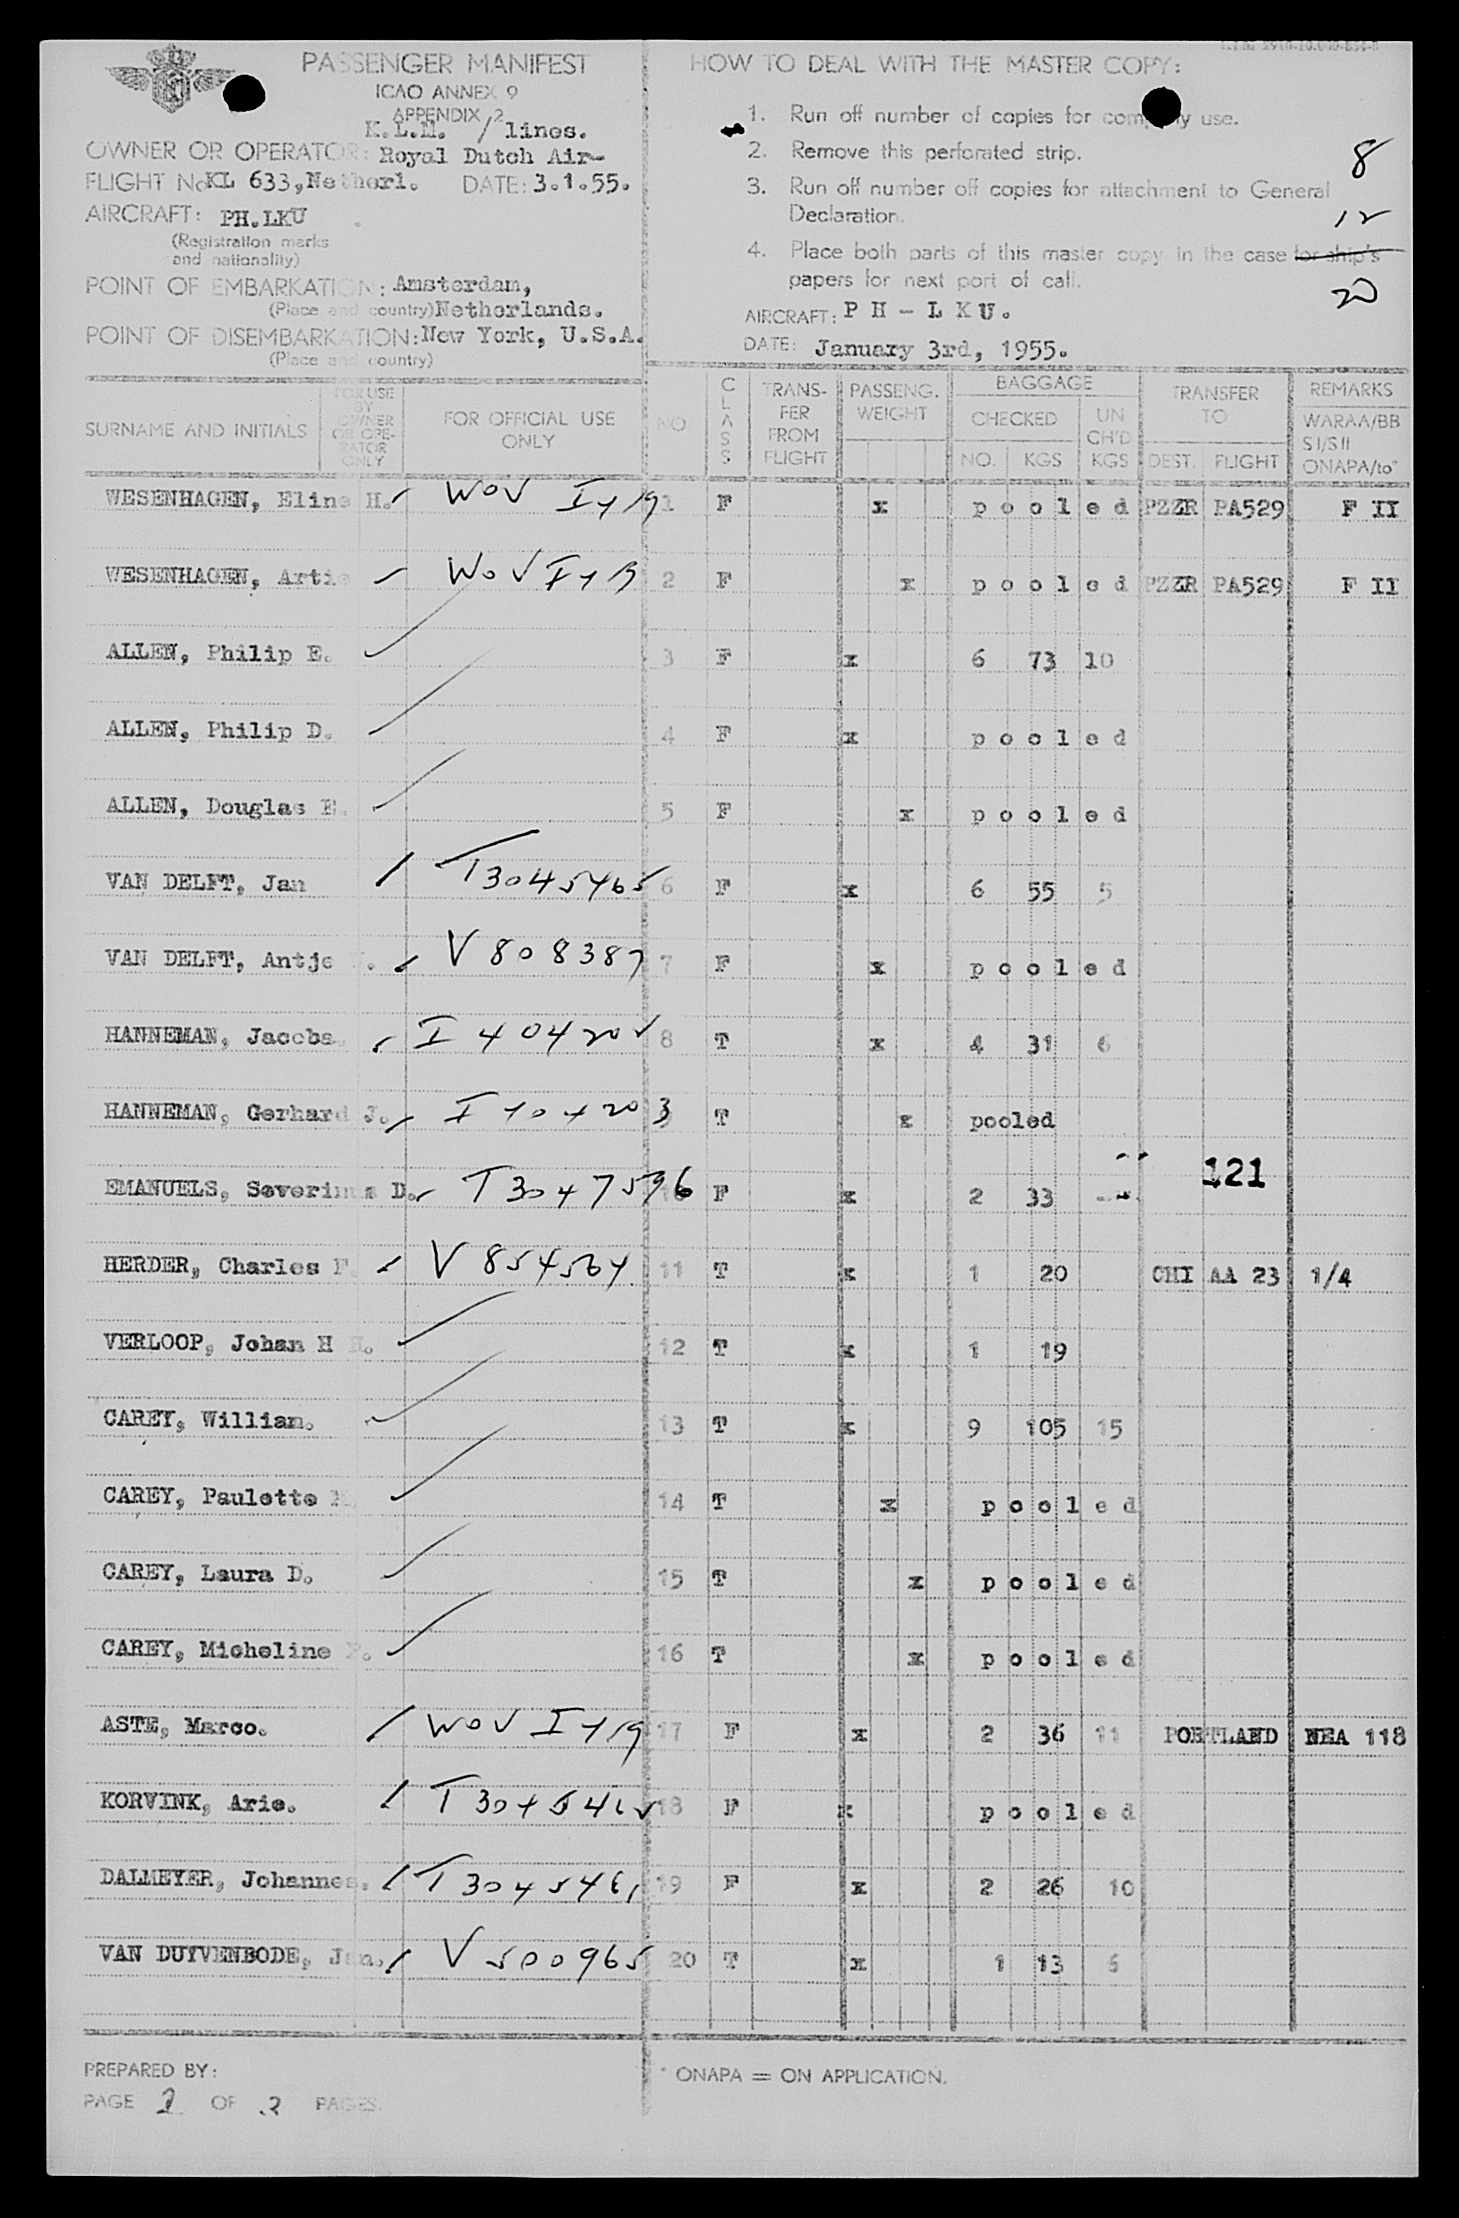 PASSENGER MANIFEST
ICAO ANNEX 9
APPENDIX 2
K.L.M. / lines.
OWNER OR OPERATOR: Royal Dutch Air-
FLIGHT No KL 633, Netherl. DATE: 3.1.55.
AIRCRAFT: PH.LKU
(Registration marks
and nationality)
POINT OF EMBARKATION: Amsterdam,
(Place and country) Netherlands.
POINT OF DISEMBARKATION: New York, U.S.A.
(Place and country)
HOW TO DEAL WITH THE MASTER COPY:
1. Run off number of copies for company use.
2. Remove this perforated strip.
8
3. Run off number off copies for attachment to General
Declaration.
12
4. Place both parts of this master copy in the case for ship's
papers for next port of call.
20
AIRCRAFT: P H - L K U.
DATE: January 3rd, 1955.
SURNAME AND INITIALS FOR USE BY OWNER OR OPE- RATOR ONLY FOR OFFICIAL USE ONLY NO CLASS TRANS- FER FROM FLIGHT PASSENG. WEIGHT BAGGAGE CHECKED NO. KGS UN CH'D KGS TRANSFER TO DEST. FLIGHT REMARKS WARAA/BB SI/SII ONAPA/to*
WESENHAGEN, Eline H. WOV I 419 1 F x pooled PZZR PA529 F II
WESENHAGEN, Artie WOV 2 F x pooled PZZR PA529 F II
ALLEN, Philip E. 3 F x 6 73 10
ALLEN, Philip D. 4 F x pooled
ALLEN, Douglas E. 5 F x pooled
VAN DELFT, Jan T3045465 6 F x 6 55 5
VAN DELFT, Antje V 808387 7 F x pooled
HANNEMAN, Jacoba I 404202 8 T x 4 31 6
HANNEMAN, Gerhard J. I 404203 T x pooled
EMANUELS, Severinus D. T3047596 10 F x 2 33 121
HERDER, Charles F. V 854564 11 T x 1 20 CHI AA 23 1/4
VERLOOP, Johan H H. 12 T x 1 19
CAREY, William. 13 T x 9 105 15
CAREY, Paulette 14 T x pooled
CAREY, Laura D. 15 T x pooled
CAREY, Micheline 16 T x pooled
ASTE, Marco. WOV I 419 17 F x 2 36 11 PORTLAND NEA 118
KORVINK, Arie. 18 F x pooled
DALMEYER, Johannes. T3045461 19 F x 2 26 10
VAN DUYVENBODE, Jan. V 500965 20 T x 1 13 6
PREPARED BY:
PAGE 2 OF PAGES.
* ONAPA = ON APPLICATION.